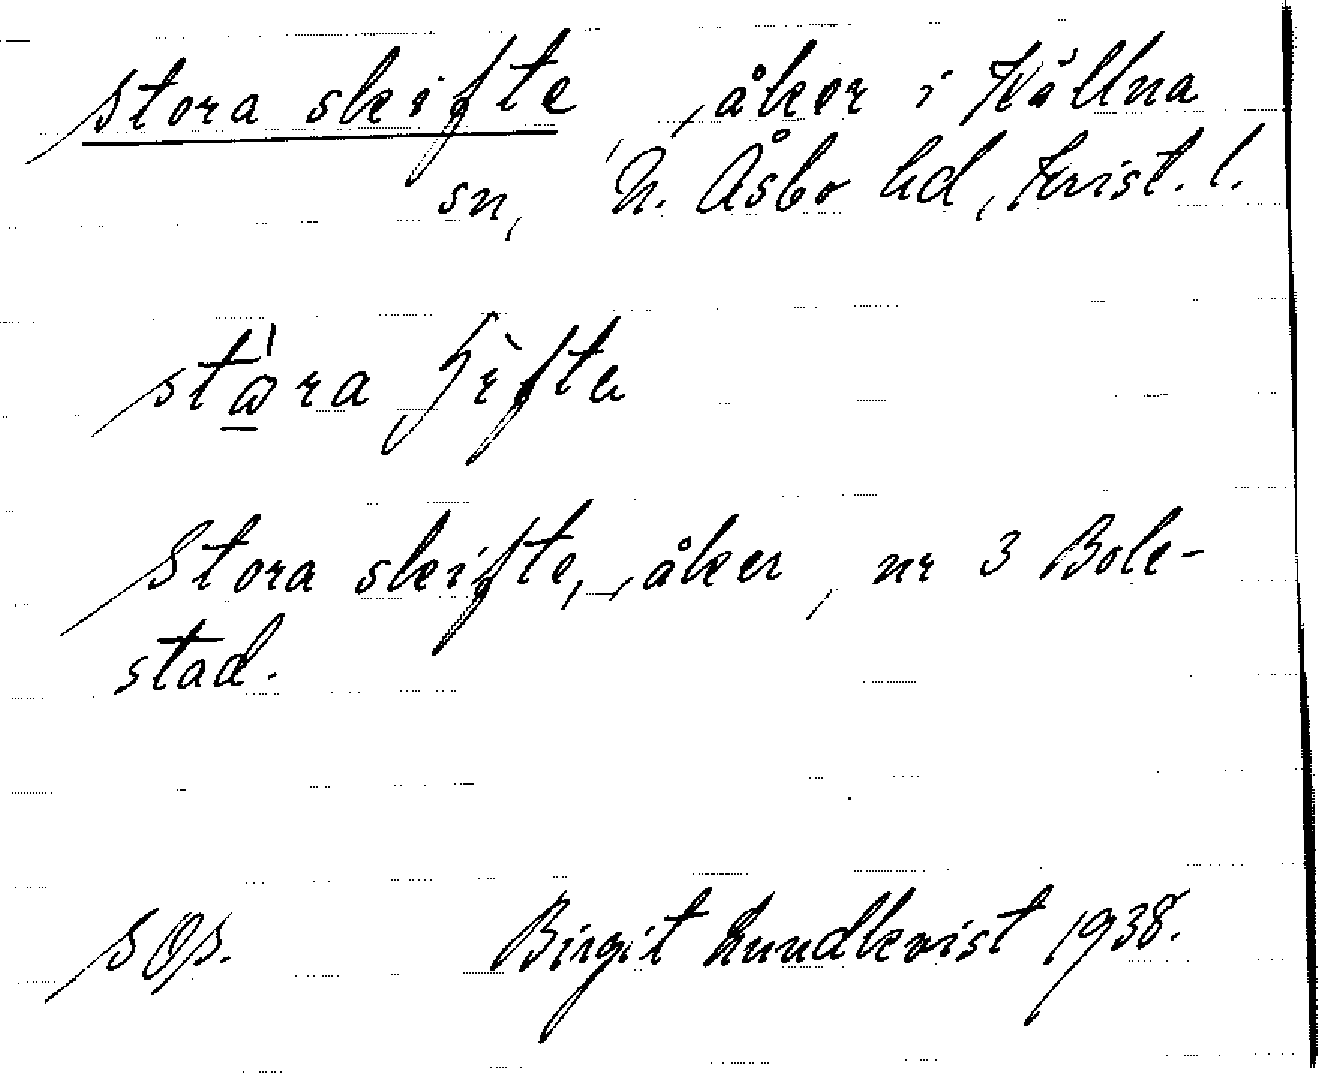 Stora skifte, åker i Källna
sn, N. Åsbo hd, Krist. l.
Stora skifte, åker, nr 3 Bole-
stad.
SOS. Birgit Lundkvist 1938.